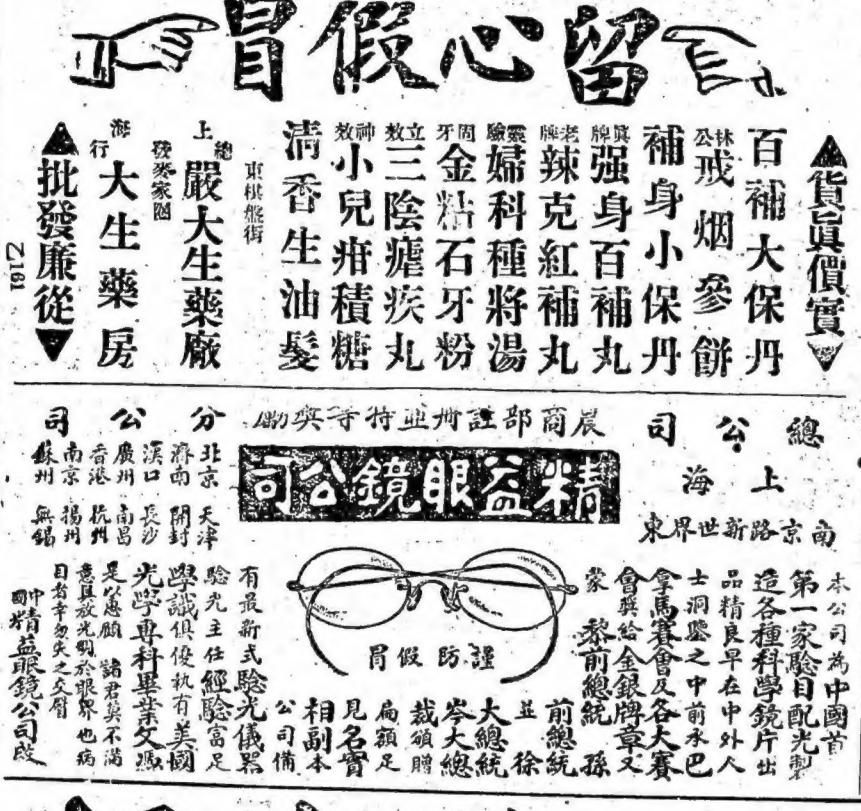 留心假冒
貨真價實
百補大保丹
林公戒烟參餅
補身小保丹
真牌强身百補丸
老牌辣克紅補丸
靈驗婦科種將湯
固牙金粘石牙粉
立效三陰瘧疾丸
神效小兒疳積糖
清香生油髮
東棋盤街
上海
總發行
嚴大生藥廠
麥家圈
大生藥房
批發廉從
1912
總公司
上海
南京路新世界東
農商部註册並特等獎勵
精益眼鏡公司
謹防假冒
分公司
北京 天津
濟南 開封
漢口 長沙
廣州 南昌
香港 杭州
南京 揚州
蘇州 無錫
本公司為中國首
第一家驗目配光製
造各種科學鏡片出
品精良早在中外人
士洞鑒之中前承巴
拿馬賽會及各大賽
會獎給金銀牌章又
蒙 黎前總統 孫
前總統
並 徐
大總統
岑大總
裁頒贈
扁額足
見名實
相副本
公司備
有最新式驗光儀器
驗光主任經驗富足
學識俱優執有美國
光學專科畢業文憑
是以惠顧 諸君莫不滿
意且放光明於眼界也病
目者幸勿失之交臂
中國精益眼鏡公司啟